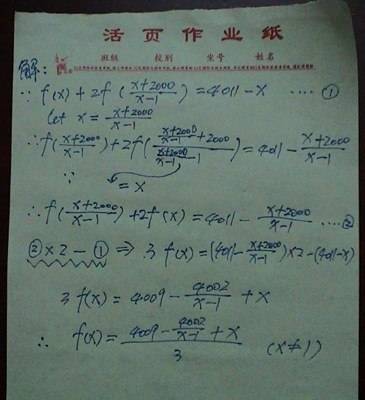 活页作业纸
班级 校别 坐号 姓名
解:
∵ f(x)+2f(\frac{x+2000}{x-1})=4011-x ····①
let x=\frac{x+2000}{x-1}
∴f(\frac{x+2000}{x-1})+2f(\frac{\frac{x+2000}{x-1}+2000}{\frac{x+2000}{x-1}-1})=4011-\frac{x+2000}{x-1}
∵ =x
∴ f(\frac{x+2000}{x-1})+2f(x)=4011-\frac{x+2000}{x-1} ····②
②×2-① ⇒ 3f(x)=(4011-\frac{x+2000}{x-1})×2-(4011-x)
3f(x)=4009-\frac{4002}{x-1}+x
∴ f(x)=\frac{4009-\frac{4002}{x-1}+x}{3} (x≠1)